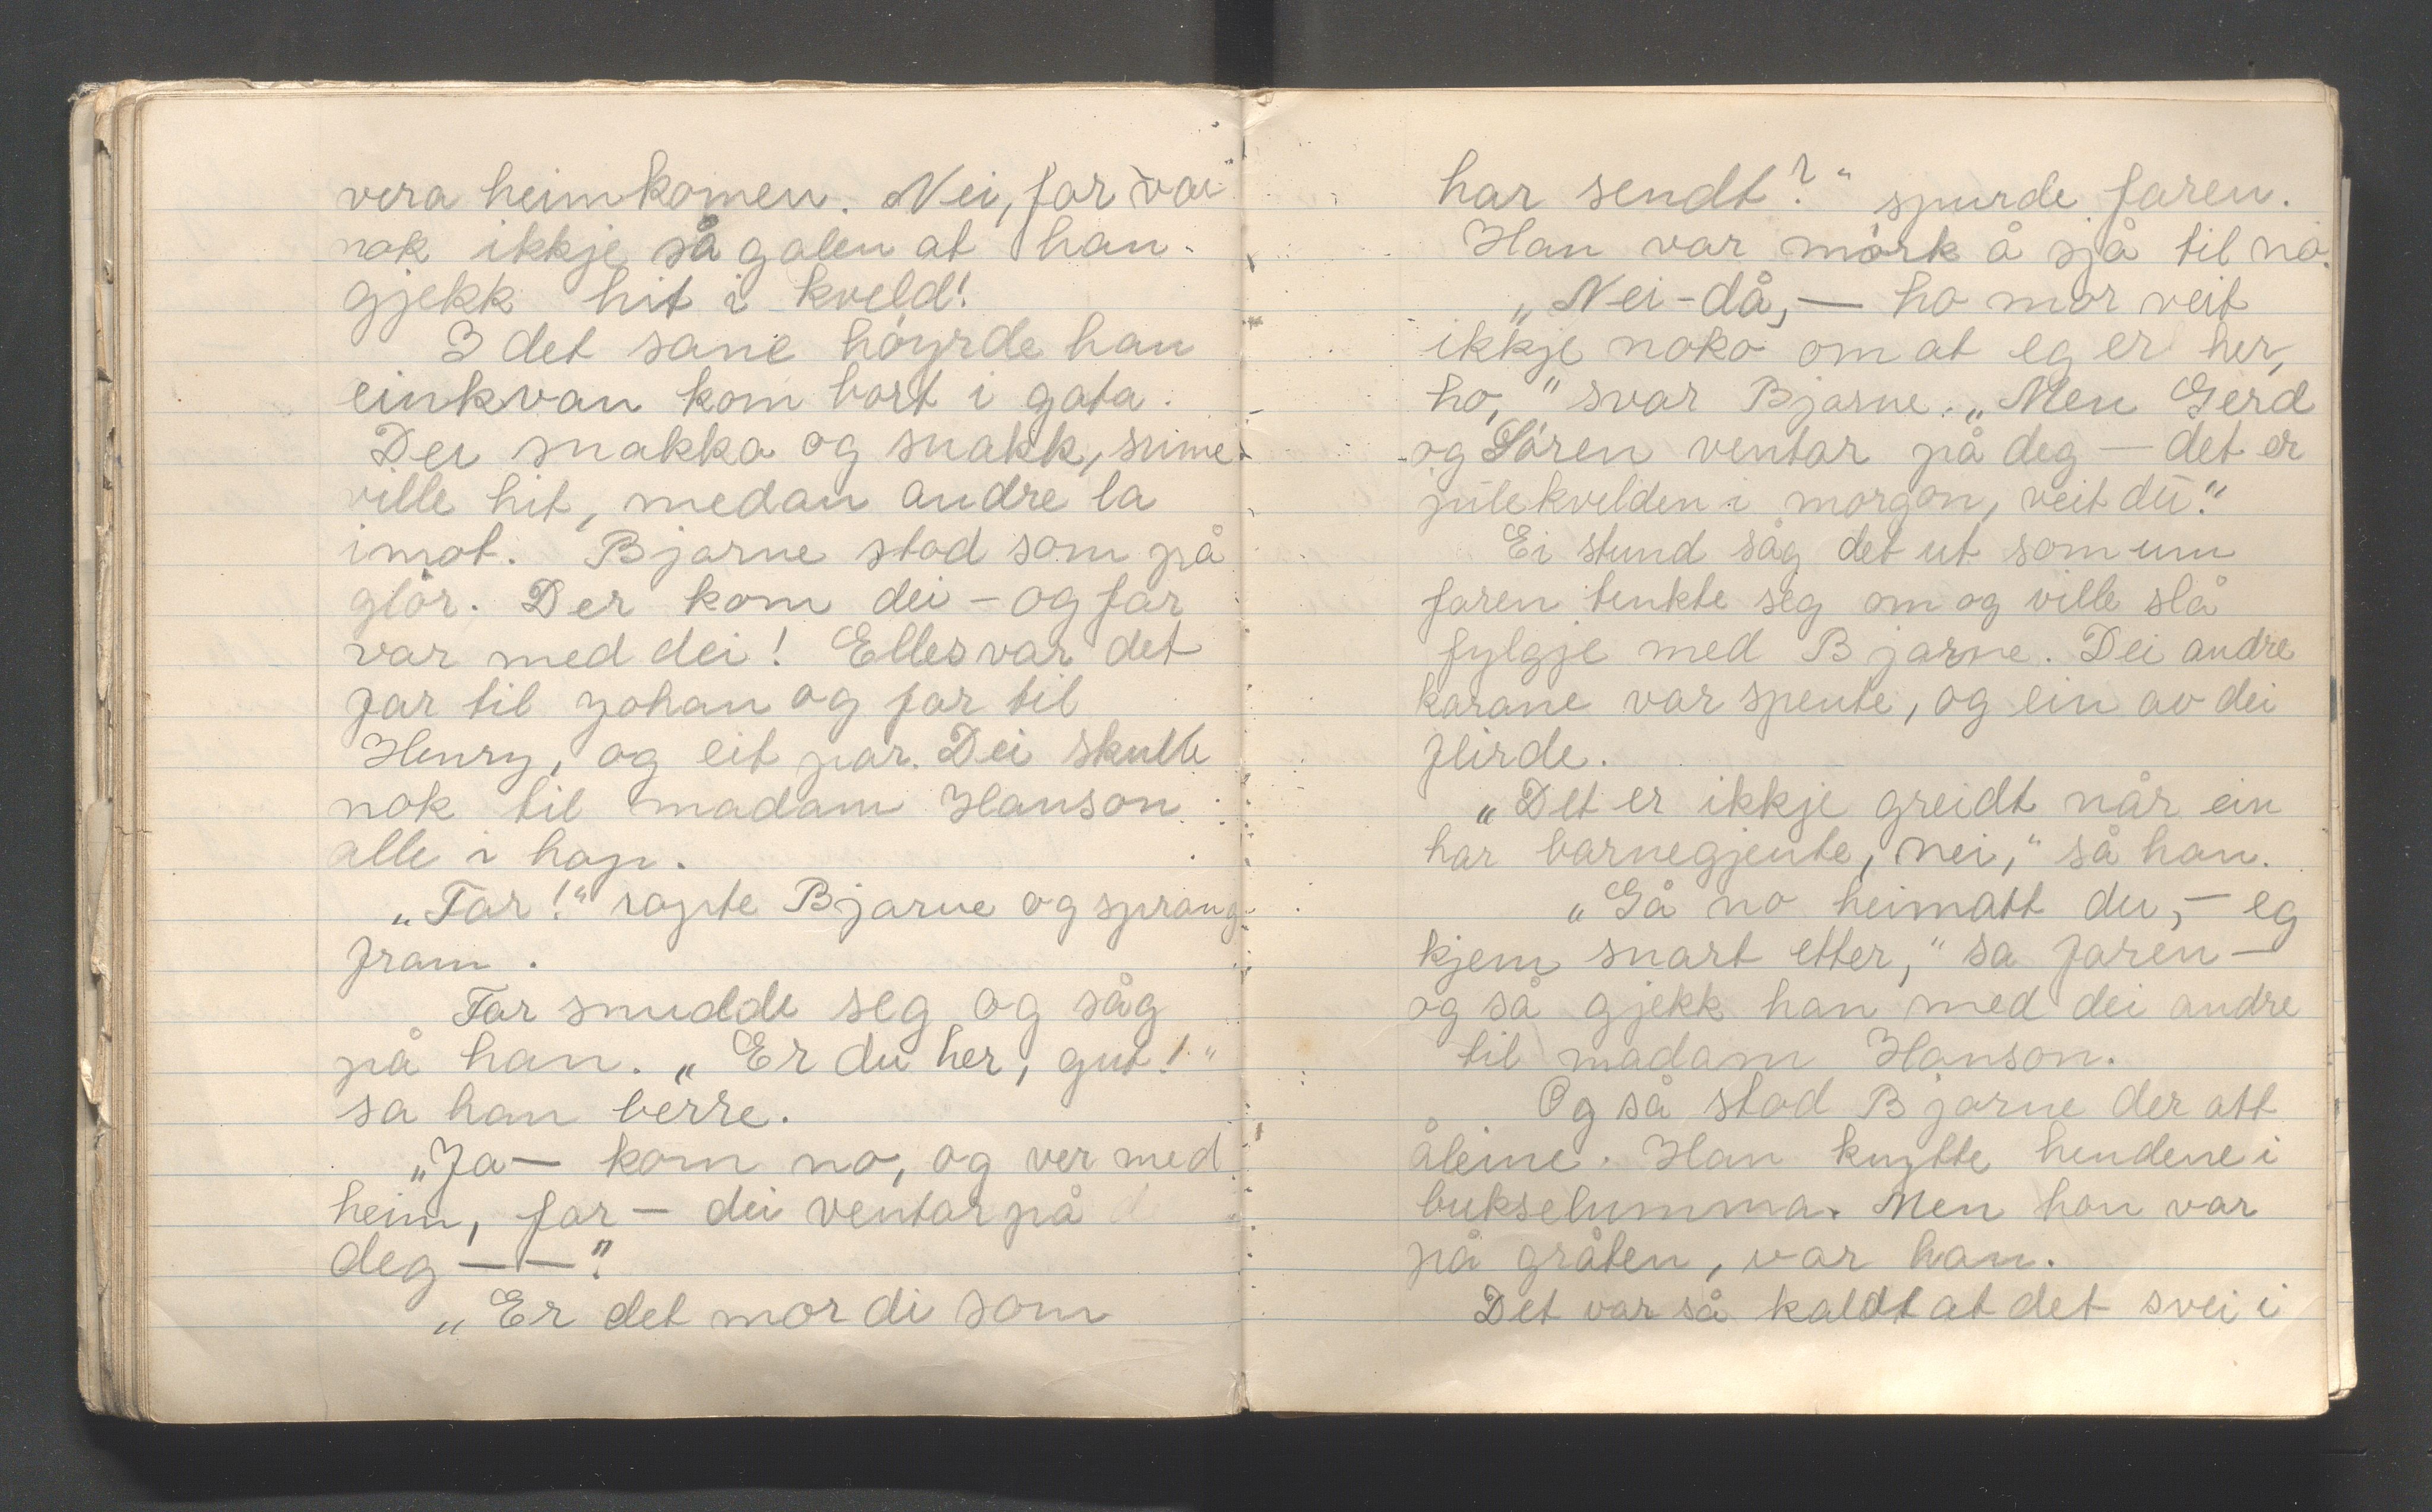 vera heimkomen. Nei, far var
nok ikkje så galen at han
gjekk hit i kveld!
I det same höyrde han
einkvan kom bort i gata.
Dei snakka og snakk, sume
ville hit, medan andre la
imot. Bjarne stod som på
glör. Der kom dei - og far
var med dei! Elles var det
far til Johan og far til
Henry, og eit par. Dei skulle
nok til madam Hanson
alle i hop.
„Far!" ropte Bjarne og sprang
fram.
Far snudde seg og såg
på han. „Er du her, gut!"
sa han berre.
„Ja — kom no, og ver med
heim, far — dei ventar på
deg — —."
„Er det mor di som
har sendt?" spurde faren.
Han var mörk å sjå til no.
„Nei-då, — ho mor veit
ikkje noko om at eg er her,
ho," svar Bjarne. „Men Gerd
og Sören ventar på deg — det er
julekvelden i morgon, veit du."
Ei stund såg det ut som um
faren tenkte seg om og ville slå
fylgje med Bjarne. Dei andre
karane var spente, og ein av dei
flirde.
„Det er ikkje greidt når ein
har barnegjente, nei," så han.
„Gå no heimatt du, — eg
kjem snart etter," sa faren —
og så gjekk han med dei andre
til madam Hanson.
Og så stod Bjarne der att
åleine. Han knytte hendene i
bukselumma. Men han var
på gråten, var han.
Det var så kaldt at det svei i